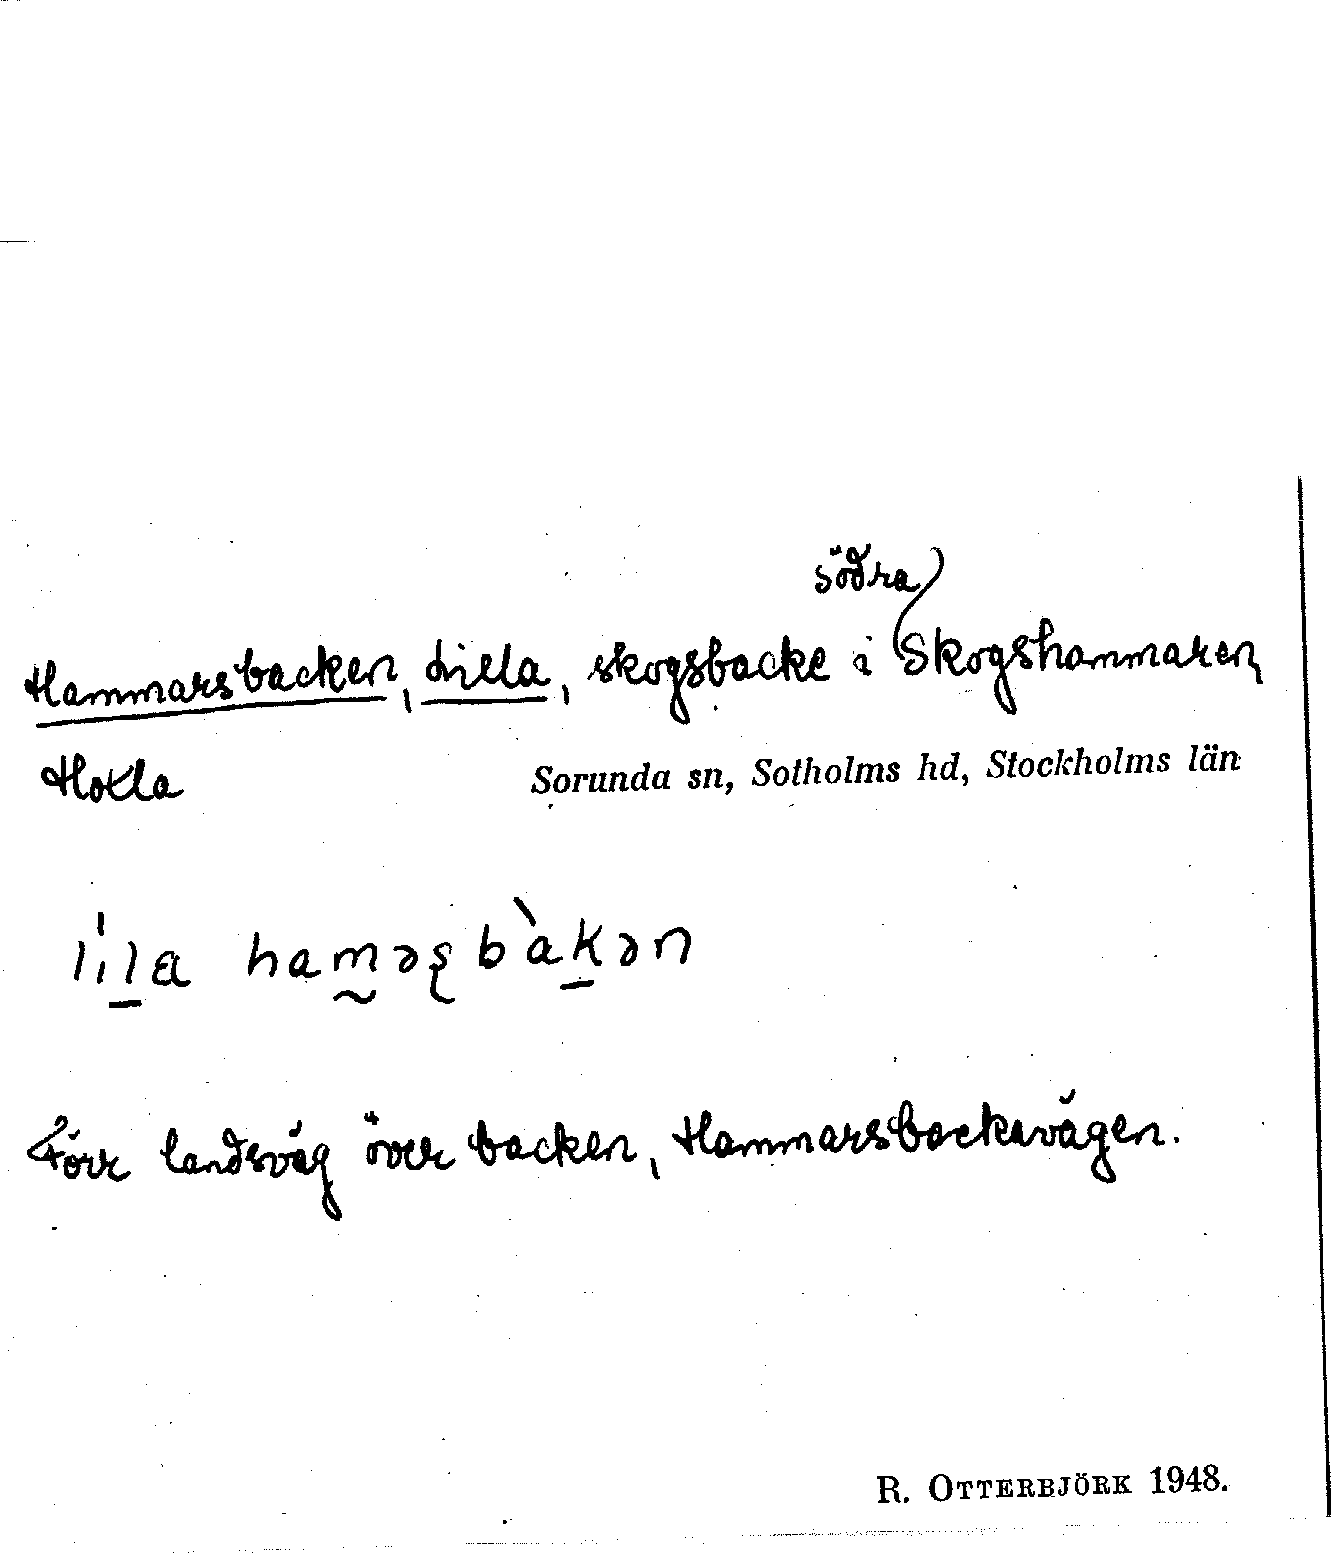 Hammarsbacken, Lilla, skogsbacke i södra Skogshammaren
Hoxla Sorunda sn, Sotholms hd, Stockholms län
Förr landsväg över backen, Hammarsbackavägen.
R. OTTERBJÖRK 1948.